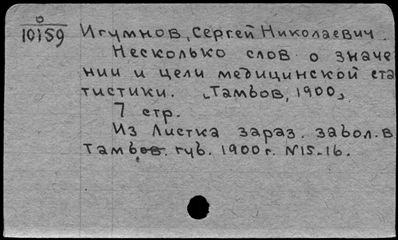 0
10159
Игумнов, Сергей Николаевич.
Несколько слов о значе
нии и цели медицинской ста
тистики. [Тамбов, 1900]
7 стр.
Из Листка зараз. забол. в
Тамбов. губ. 1900 г. N15-16.